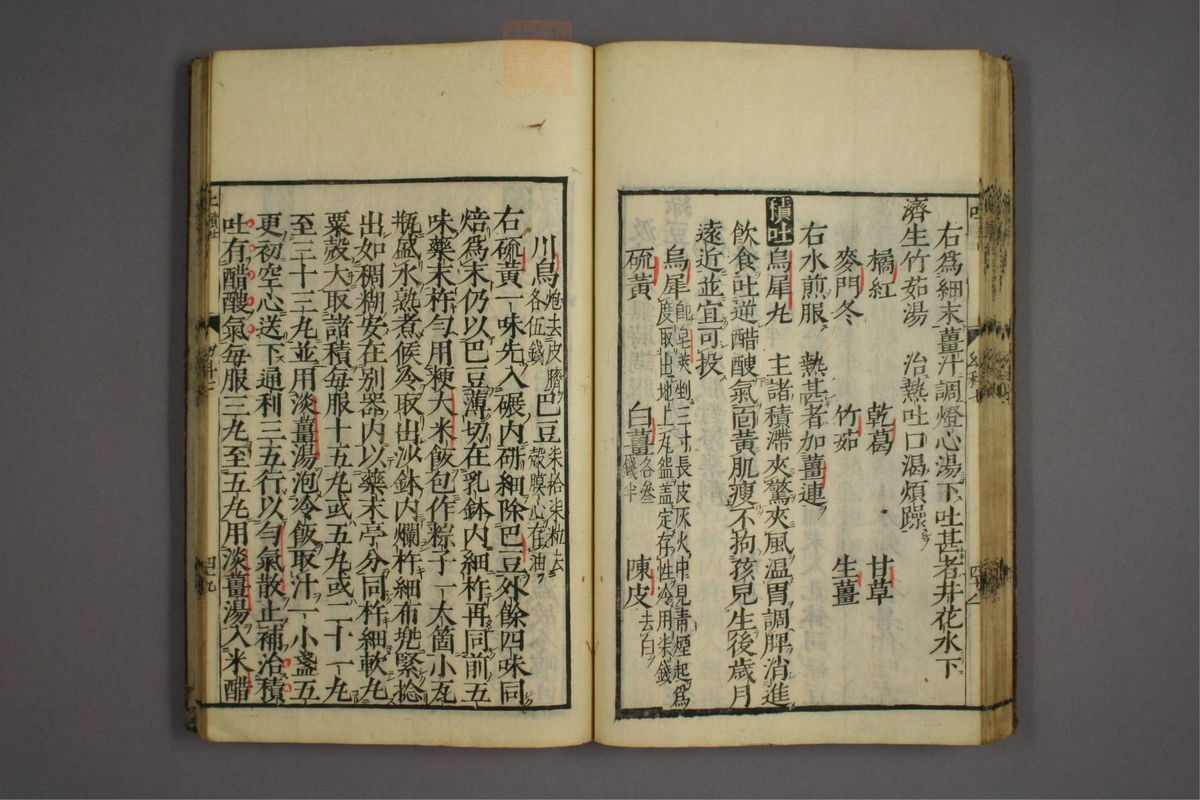 右爲細末薑汁調燈心湯下吐甚者井花水下
濟生竹茹湯　治熱吐口渴煩躁
橘紅　乾葛　甘草
麥門冬　竹茹　生薑
右水煎服　熱甚者加薑連
積吐　烏犀丸　主諸積滯夾驚夾風溫胃調脾消進
飲食吐逆醋餿氣面黃肌瘦不拘孩兒生後歲月
遠近並宜可投
烏犀 卽皂莢剉三寸長皮灰火中見青煙起爲
度取出地上瓦鎰盖定存性冷用柒錢
硫黃　白薑 各叄
錢半　陳皮 去白
川烏 炮去皮臍
各伍錢　巴豆 柒拾柒粒去
殼膜心存油
右硫黃一味先入碾內研細除巴豆外餘四味同
焙爲末仍以巴豆薄切在乳鉢內細杵再同前五
味藥末杵勻用粳大米飯包作粽子一大箇小瓦
瓶盛水熟煮候冷取出沙鉢內爛杵細布兜緊捻
出如稠糊安在別器內以藥末亭分同杵細軟丸
粟殼大取諸積每服十五丸或五丸或二十一丸
至三十三丸並用淡薑湯泡冷飯取汁一小盞五
更初空心送下通利三五行以勻氣散止補冾積
吐有醋餿氣每服三丸至五丸用淡薑湯入米醋
四十九